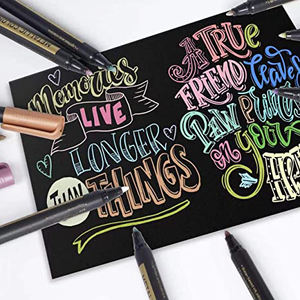 Memories
LIVE
LONGER
THAN
THINGS
A TRUE
FRIEND leaves
PAW Prints
on your
HE